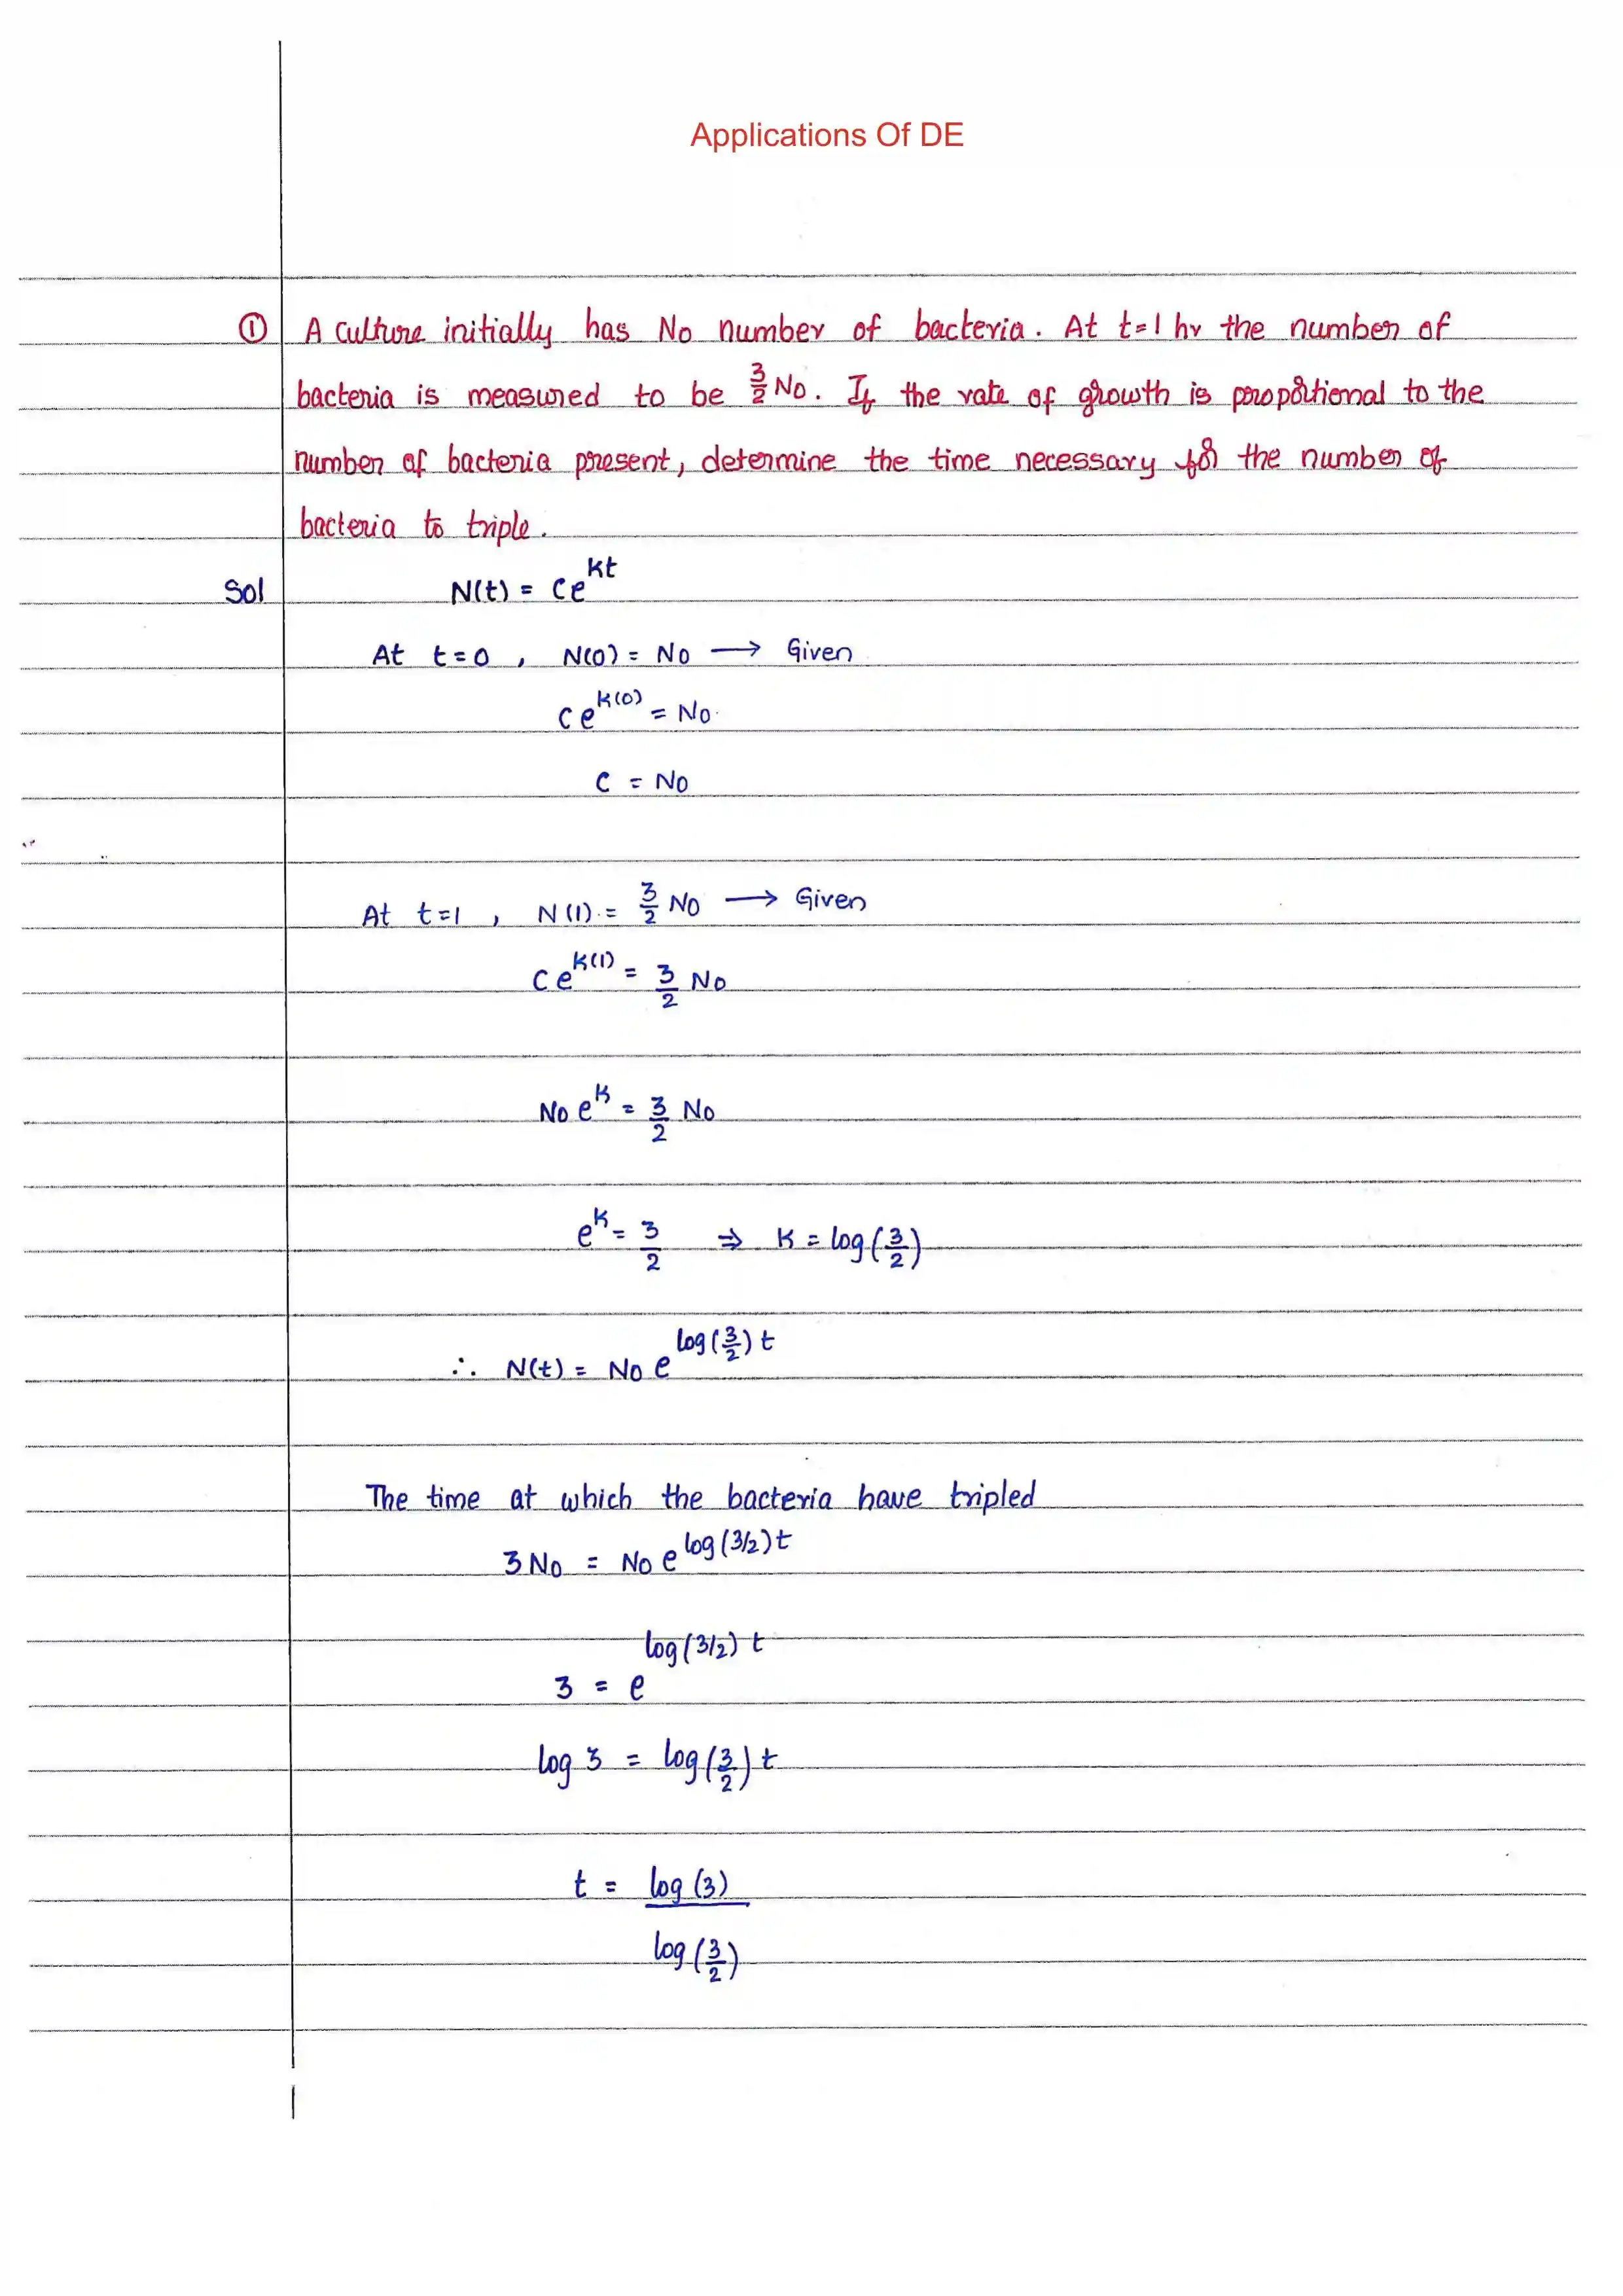 Applications Of DE
① A culture initially has No number of bacteria. At t=1 hr the number of
bacteria is measured to be 3/2 No. If the rate of growth is proportional to the
number of bacteria present, determine the time necessary for the number of
bacteria to triple.
Sol N(t) = Ce^kt
At t=0 , N(0) = No → Given
Ce^k(0) = No
C = No
At t=1 , N(1) = 3/2 No → Given
Ce^k(1) = 3/2 No
No e^k = 3/2 No
e^k = 3/2 ⇒ K = log(3/2)
∴ N(t) = No e^log(3/2)t
The time at which the bacteria have tripled
3No = No e^log(3/2)t
3 = e^log(3/2)t
log 3 = log(3/2)t
t = log(3)
log(3/2)